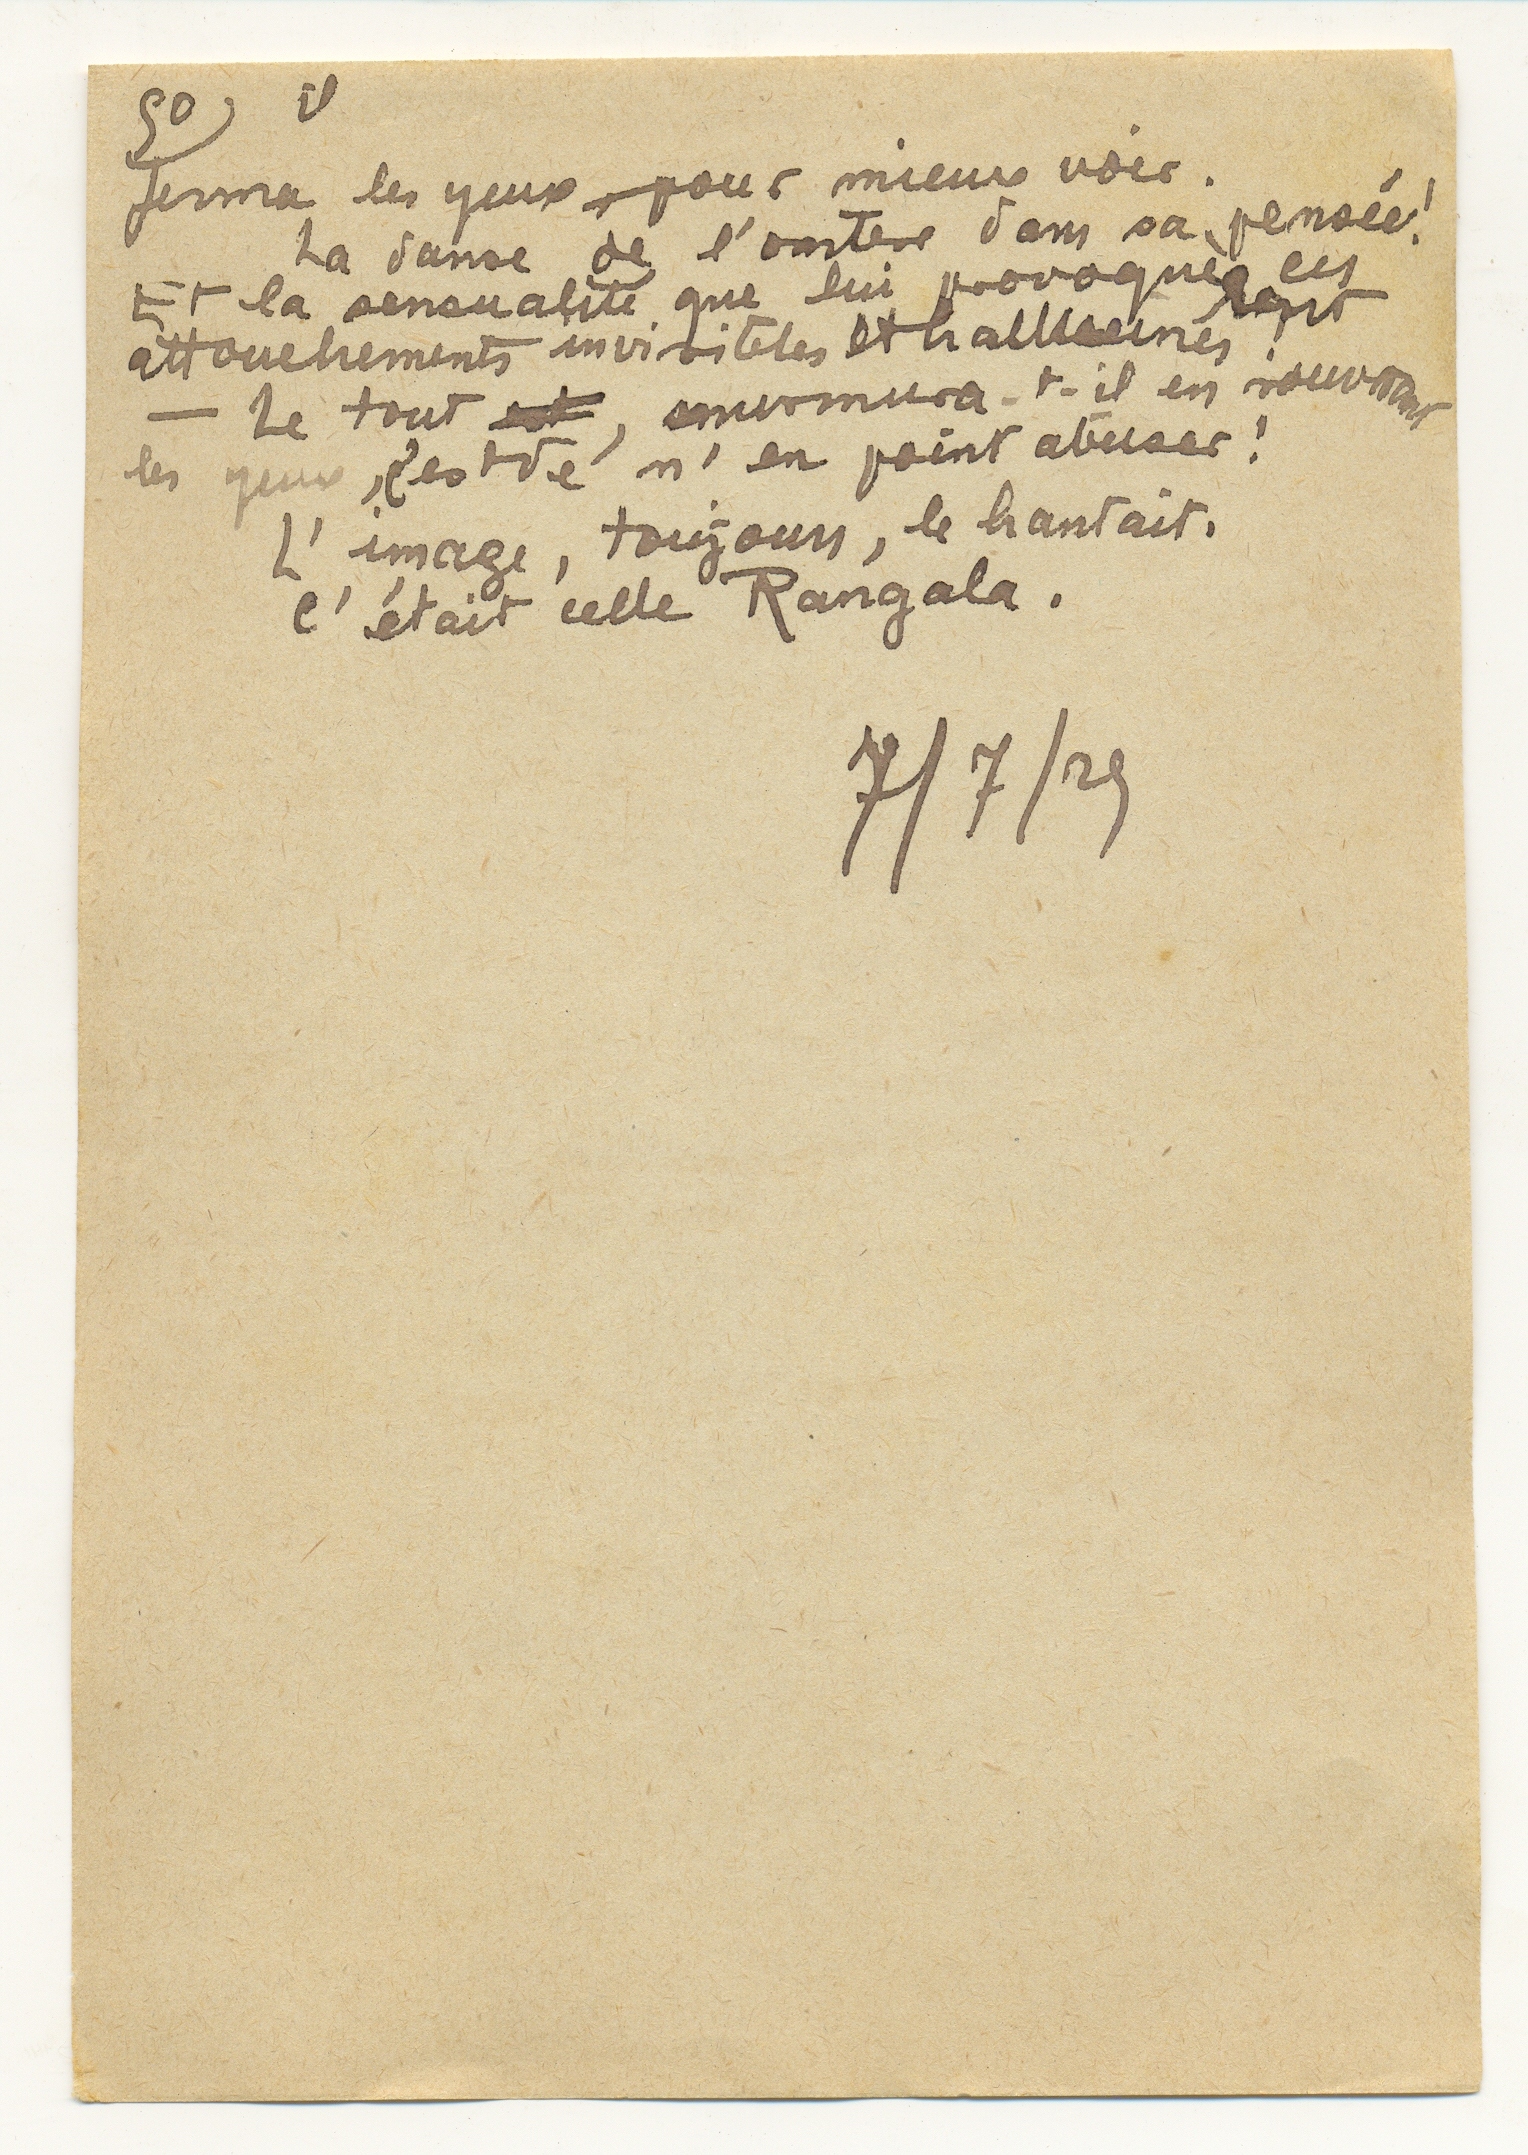 50) il
ferma les yeux pour mieux voir.
La danse de dans sa pensée!
Et la sensualité que lui provoquèrent ces
attouchements invisibles et hallucinés !
— Le tout est, murmura-t-il en rouvrant
les yeux, c'est de n'en point abuser!
L'image, toujours, le hantait.
C'était celle Rangala.
7/7/29